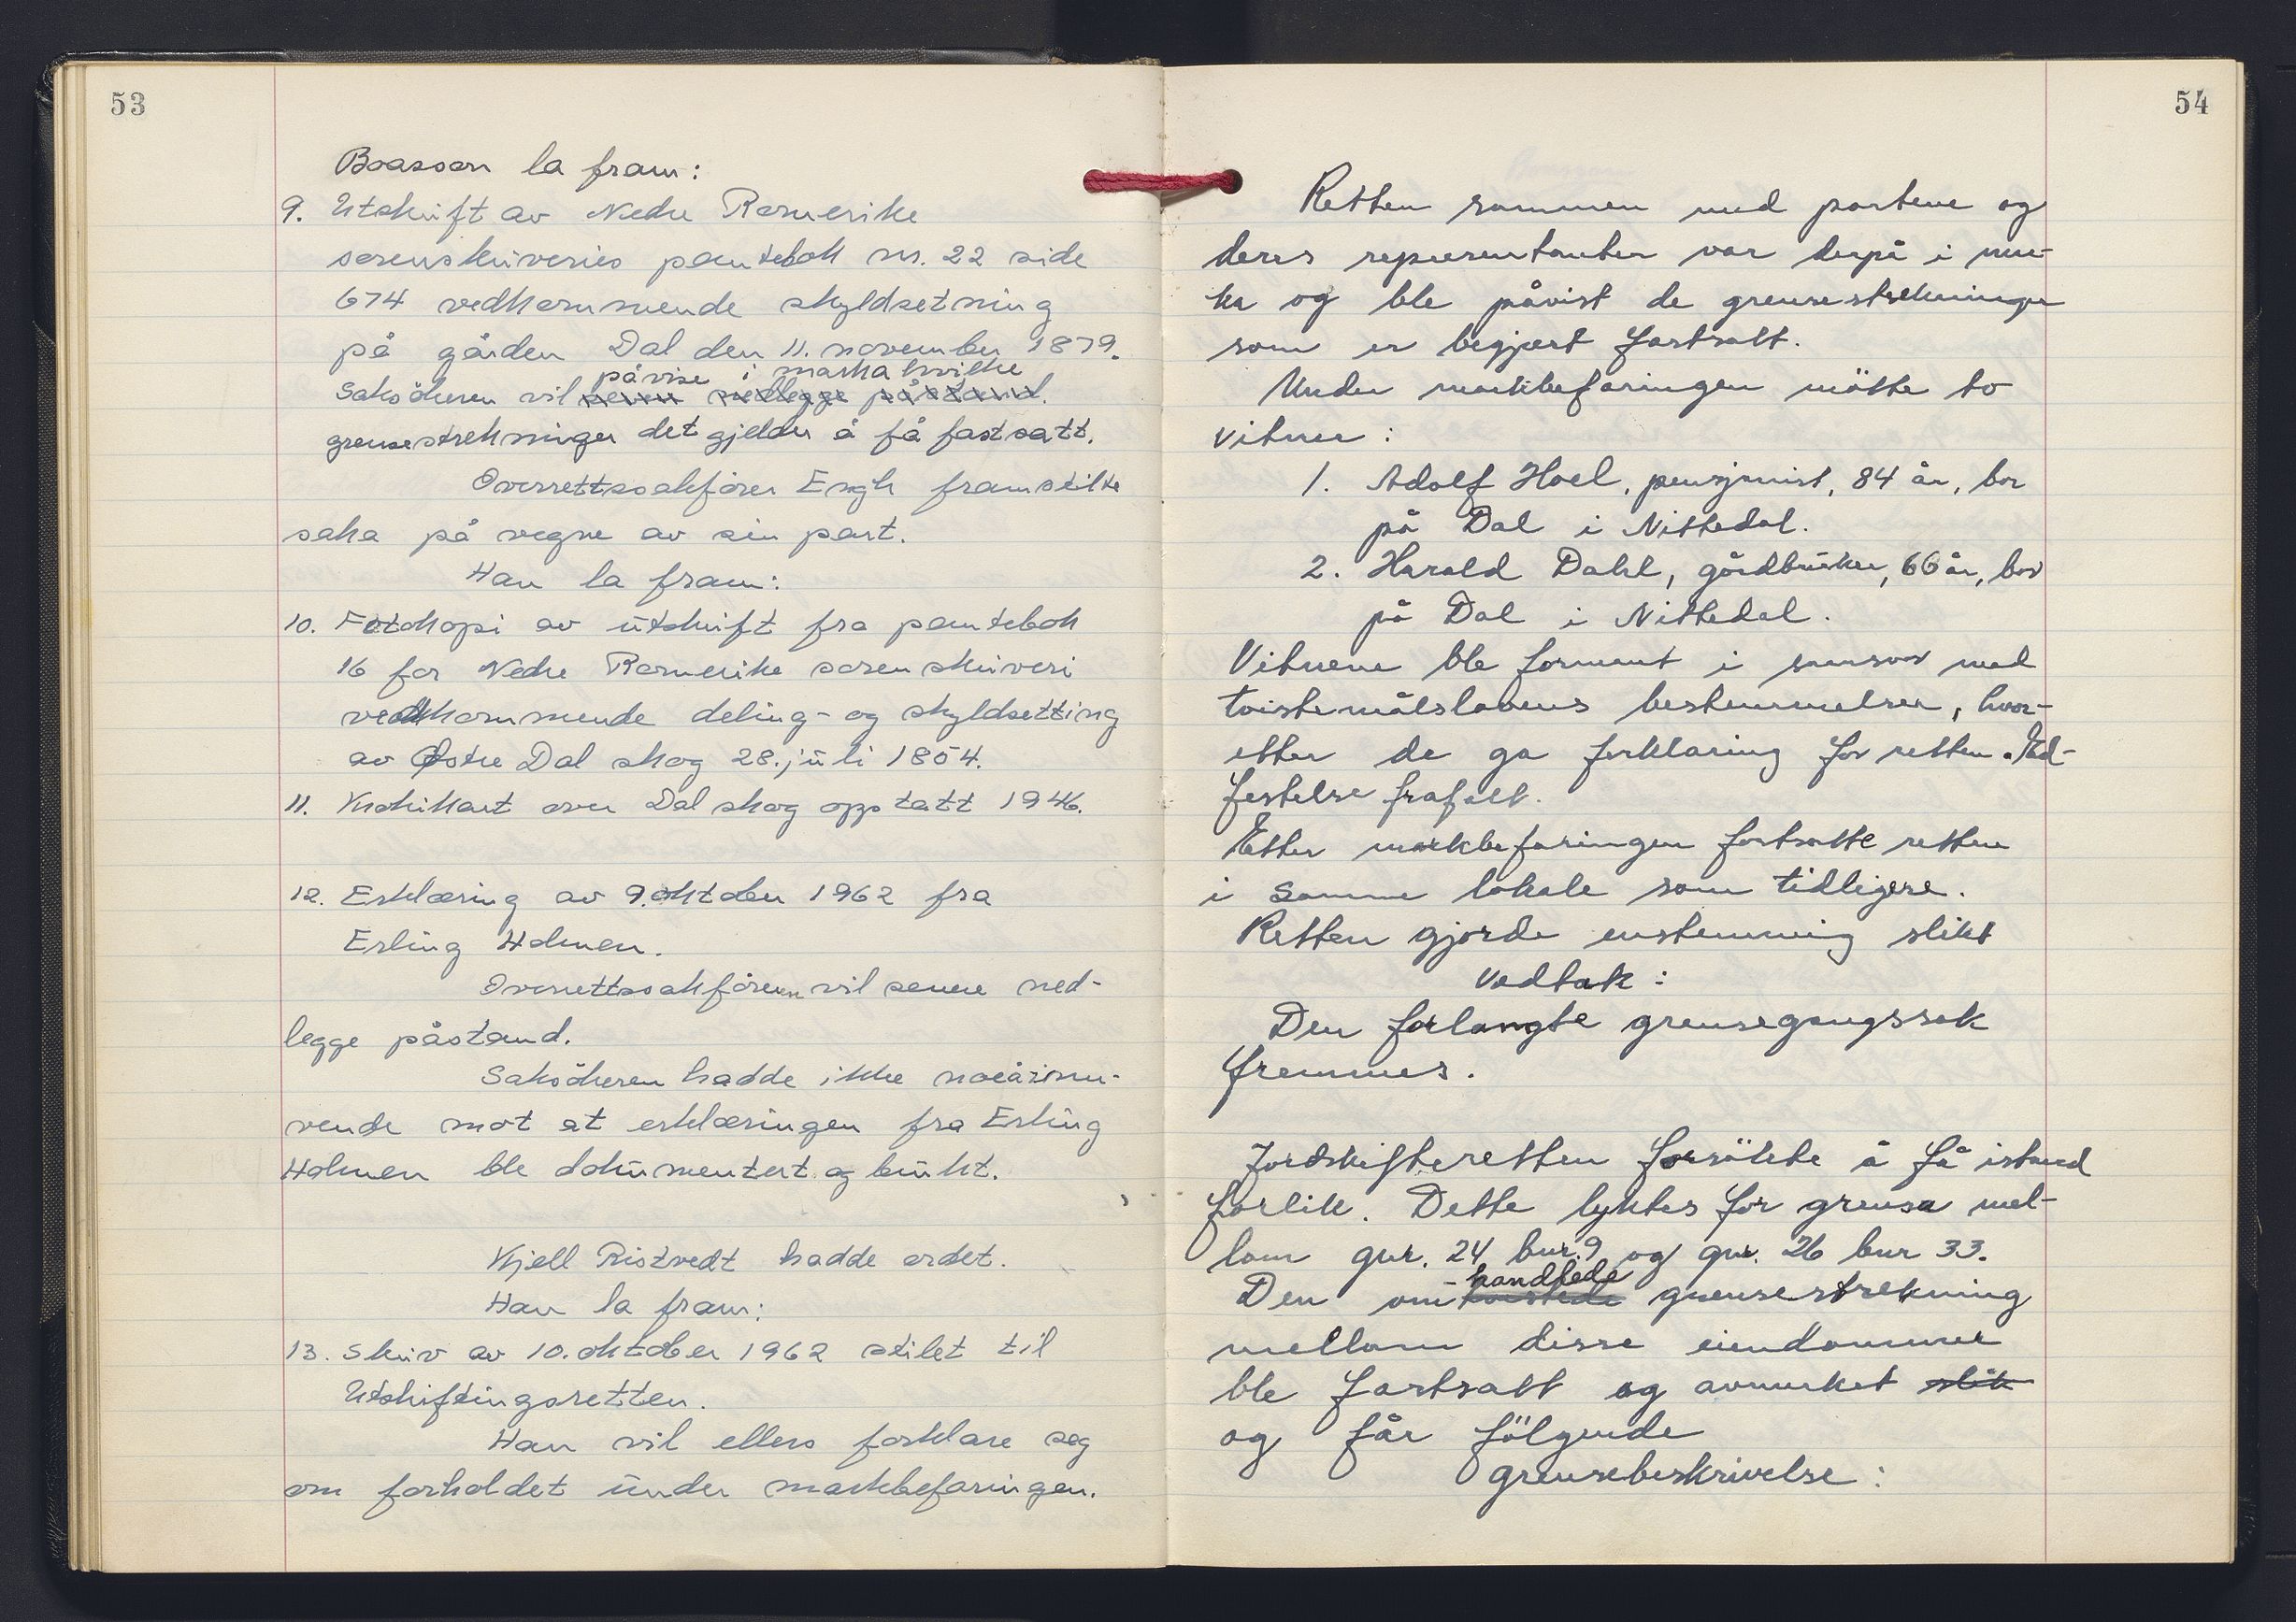 53
Boasson la fram:
9. Utskrift av Nedre Romerike
sorenskriveries pantebok nr. 22 side
674 vedkommende skyldsetning
på gården Dal den 11. november 1879.
påvise i marka hvilke
Saksökeren vil senere nedlegge påstand.
grensestrekninger det gjelder å få fastsatt.
Overrettssakförer Engh framstilte
saka på vegne av sin part.
Han la fram:
10. Fotokopi av utskrift fra pantebok
16 for Nedre Romerike sorenskriveri
vedkommende deling- og skyldsetting
av Østre Dal skog 28. juli 1854.
11. Krokikart over Dal skog opptatt 1946.
12. Erklæring av 9. oktober 1962 fra
Erling Holmen.
Overrettssakföreren vil senere ned-
legge påstand.
Saksökeren hadde ikke noe å inn-
vende mot at erklæringen fra Erling
Holmen ble dokumentert og brukt.
Kjell Ristvedt hadde ordet.
Han la fram:
13. Skriv av 10. oktober 1962 stilet til
Utskiftingsretten.
Han vil ellers forklare seg
om forholdet under markbefaringen.
54
Retten sammen med partene og
deres representanter var derpå i mar-
ka og ble påvist de grensestrekninger
som er begjært fastsatt.
Under markbefaringen mötte to
vitner:
1. Adolf Hoel, pensjonist, 84 år, bor
på Dal i Nittedal.
2. Harald Dahl, gårdbruker, 66 år, bor
på Dal i Nittedal.
Vitnene ble formant i samsvar med
tvistemålslovens bestemmelser, hvor-
etter de ga forklaring for retten. Ed-
festelse frafalt.
Etter markbefaringen fortsatte retten
i samme lokale som tidligere.
Retten gjorde enstemmig slikt
Vedtak:
Den forlangte grensegangssak
fremmes.
Jordskifteretten forsökte å få istand
forlik. Dette lyktes for grensa mel-
lom gnr. 24 bnr. 9 og gnr. 26 bnr 33.
-handlede
Den omtvistede grensestrekning
mellom disse eiendommer
ble fastsatt og avmerket slik
og får fölgende
grensebeskrivelse: